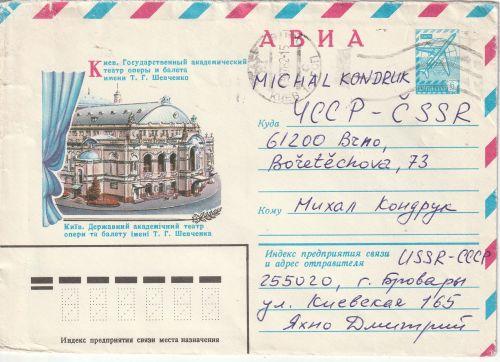 АВИА
Киев. Государственный академический
театр оперы и балета
имени Т. Г. Шевченко
Київ. Державний академічний театр
опери та балету імені Т. Г. Шевченка
MICHAL KONDRUK
ЧССР - ČSSR
Куда
61200 Brno,
Bořetěchova, 73
Кому
Михал Кондрук
Индекс предприятия связи
и адрес отправителя
USSR-СССР
255020, г. Бровары
ул. Киевская 165
Яхно Дмитрий
Индекс предприятия связи места назначения